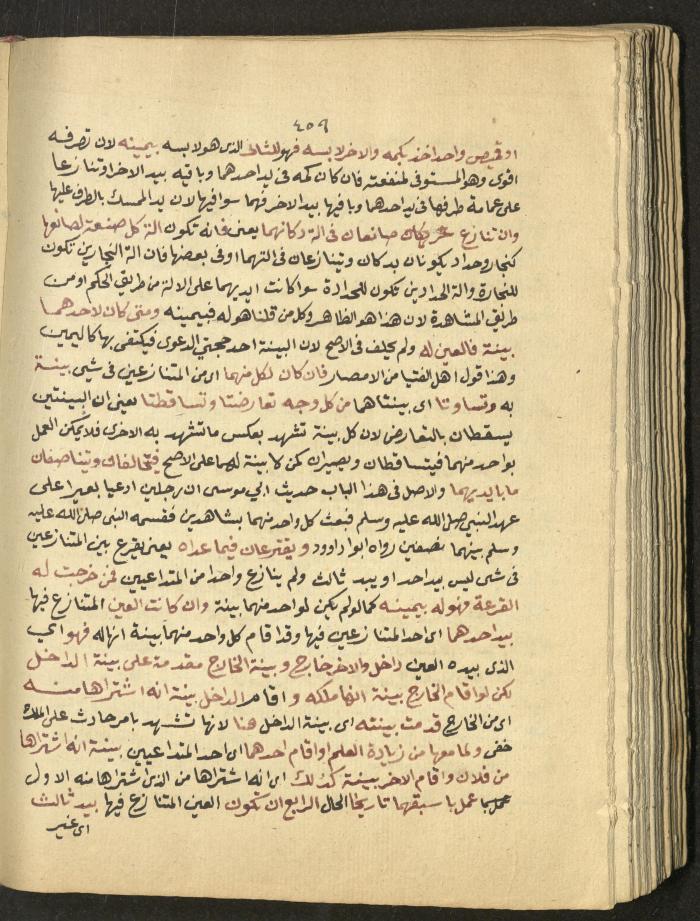 ٤٥٩
او قميص واحد اخذ بكمه والاخر لابسه فهو للثانى الذى هو لابسه بيمينه لان تصرفه
اقوى وهو المستوفى لمنفعته فان كان كمه فى يد احدهما وباقيه بيد الاخر او تنازعا
على عمامة طرفها فى يد احدهما وباقيها بيد الاخر فهما سوا فيها لان يد الممسك بالطرف عليها
وان تنازع صانعان فى الة دكانهما يعنى فانه تكون الة كل صنعة لصانعها
كنجار وحداد يكونان بدكان ويتنازعان فى التهما او فى بعضها فان الة النجارين تكون
للنجارة والة الحدادين تكون للحدادة سوا كانت ايديهما على الالة من طريق الحكم او من
طريق المشاهدة لان هذا هو الظاهر وكل من قلنا هو له فبيمينه ومتى كان لاحدهما
بينة فالعين له ولم يحلف فى الاصح لان البينة احد حجتي الدعوى فيكتفى بها كاليمين
وهذا قول اهل الفتيا من الامصار فان كان لكل منهما اى من المتنازعين فى شى بينة
به وتساوتا اى بينتاهما من كل وجه تعارضتا وتساقطتا يعنى ان البينتين
يسقطان بالتعارض لان كل بينة تشهد بعكس ما تشهد به الاخرى فلا يمكن العمل
بواحد منهما فيتساقطان ويصيران كمن لا بينة لهما على الاصح فيتحالفان ويتناصفان
ما بايديهما والاصل فى هذا الباب حديث ابي موسى ان رجلين ادعيا بعيرا على
عهد النبي صلى الله عليه وسلم فبعث كل واحد منهما بشاهدين فقسمه النبى صلى الله عليه
وسلم بينهما نصفين رواه ابو داوود ويقترعان فيما عداه يعنى يقرع بين المتنازعين
فى شى ليس بيد احد او بيد ثالث ولم ينازع واحدا من المتداعيين فمن خرجت له
القرعة فهو له بيمينه كما لو لم يكن لواحد منهما بينة وان كانت العين المتنازع فيها
بيد احدهما اى احد المتنازعين فيها وقد اقام كل واحد منهما بينة انها له فهو اي
الذى بيده العين داخل والاخر خارج وبينة الخارج مقدمة على بينة الداخل
لكن لو اقام الخارج بينة انها ملكه واقام الداخل بينة انه اشتراها منه
اى من الخارج قدمت بينته اى بينة الداخل هنا لانها تشهد بامر حادث على الملك
خفى ولما معها من زيادة العلم او اقام احدهما اى احد المتداعيين بينة انه اشتراها
من فلان واقام الاخر بينة كذلك اى انه اشتراها من الذى اشتراها منه الاول
عمل باسبقهما تاريخا الحال الرابع ان تكون العين المتنازع فيها بيد ثالث
اى غير